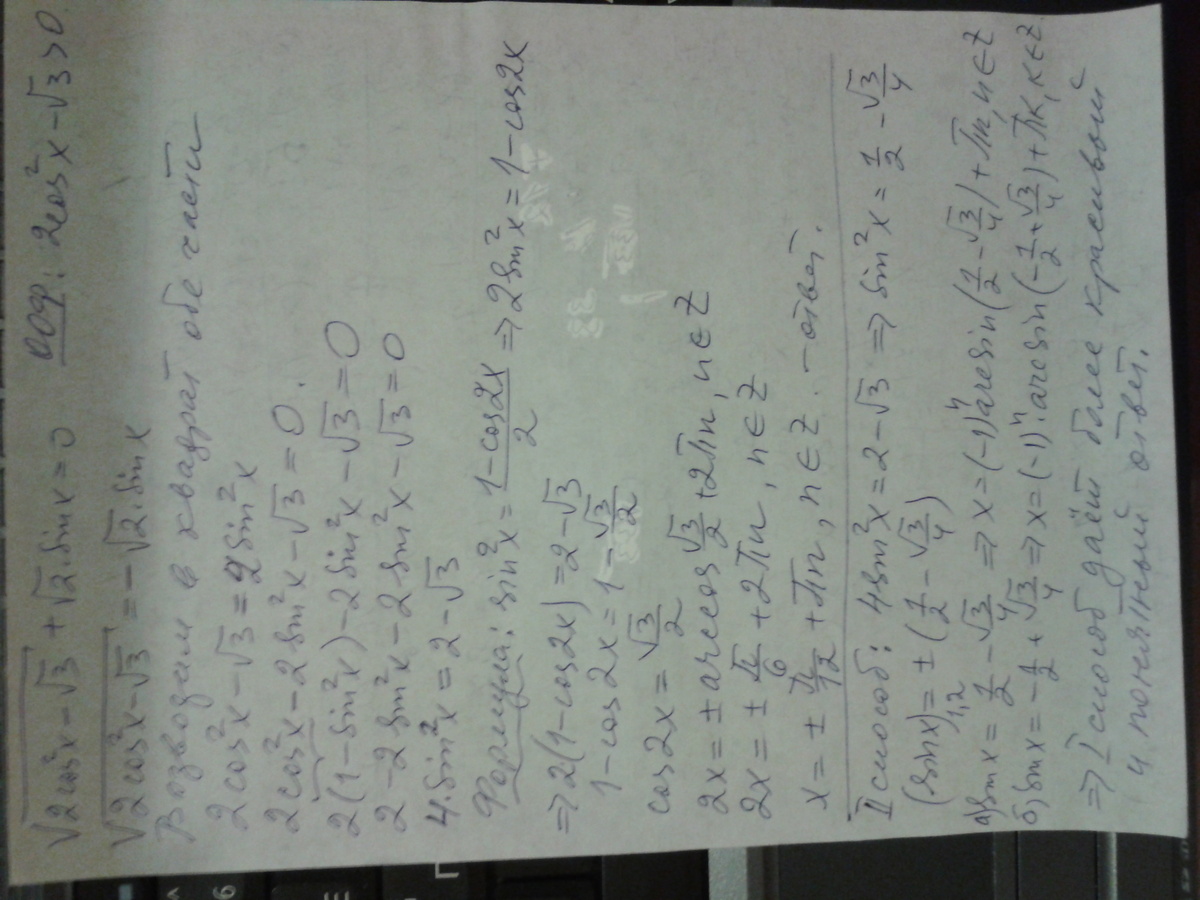 √(2cos²x-√3) + √2·sinx = 0   ОДЗ: 2cos²x-√3 > 0
√(2cos²x-√3) = -√2·sinx
Возводим в квадрат обе части
2cos²x-√3 = 2sin²x
2cos²x-2sin²x-√3 = 0.
2(1-sin²x)-2sin²x-√3 = 0
2-2sin²x-2sin²x-√3 = 0
4·sin²x = 2-√3
Формула: sin²x = (1-cos2x)/2 ⇒ 2sin²x = 1-cos2x
⇒ 2(1-cos2x) = 2-√3
1-cos2x = 1-√3/2
cos2x = √3/2
2x = ± arccos √3/2 + 2πn, n∈Z
2x = ± π/6 + 2πn, n∈Z
x = ± π/12 + πn, n∈Z. - ответ.
II способ: 4sin²x = 2-√3 ⇒ sin²x = 1/2 - √3/4
(sinx)₁,₂ = ±(1/2 - √3/4)
а) sinx = 1/2 - √3/4 ⇒ x = (-1)ⁿarcsin(1/2 - √3/4) + πn, n∈Z
б) sinx = -1/2 + √3/4 ⇒ x = (-1)ⁿ·arcsin(-1/2 + √3/4) + πk, k∈Z
⇒ I способ даёт более красивый
и понятный ответ.